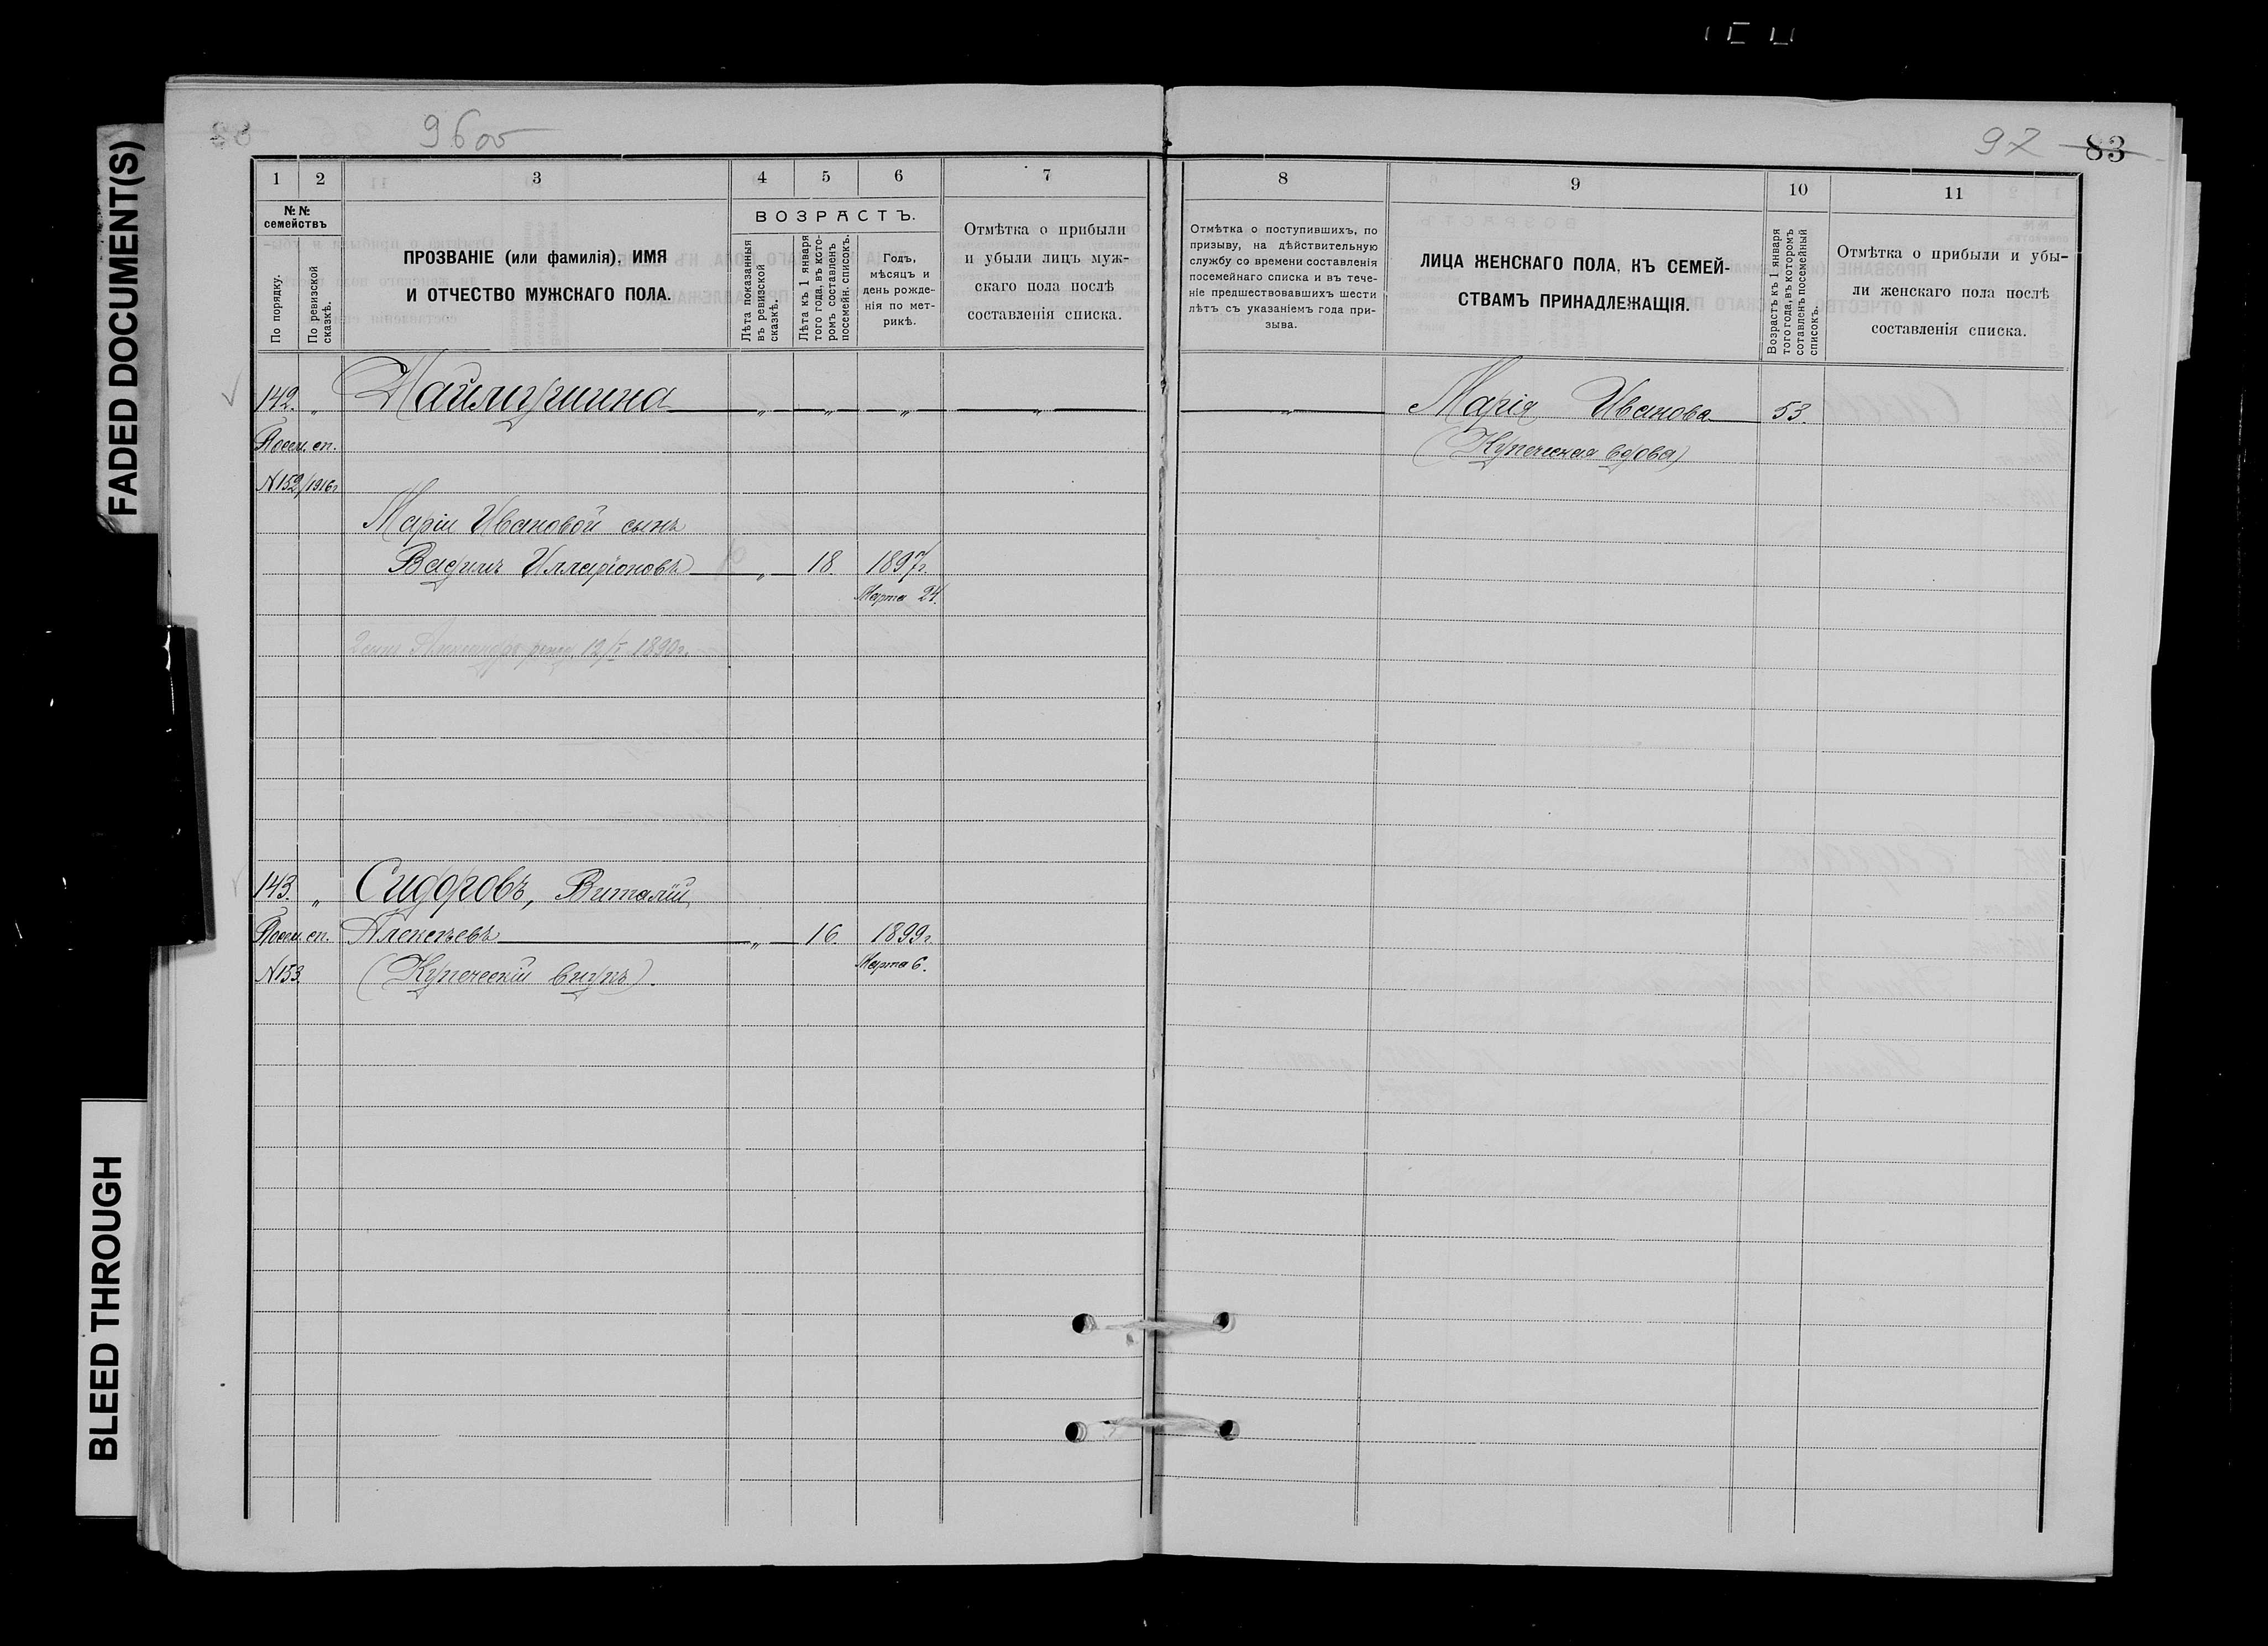 FADED DOCUMENT(S)
BLEED THROUGH
96об
97 83
1 2 3 4 5 6 7
№№ семействъ
По порядку.
По ревизской сказкѣ.
ПРОЗВАНІЕ (или фамилія), ИМЯ
И ОТЧЕСТВО МУЖСКАГО ПОЛА.
ВОЗРАСТЪ.
Лѣта показанныя въ ревизской сказкѣ.
Лѣта къ 1 января того года, въ кото-ромъ составленъ посемейн. списокъ.
Годъ,
мѣсяцъ и
день рожде-
нія по мет-
рикѣ.
Отмѣтка о прибыли
и убыли лицъ муж-
скаго пола послѣ
составленія списка.
8 9 10 11
Отмѣтка о поступившихъ, по
призыву, на дѣйствительную
службу со времени составленія
посемейнаго списка и въ тече-
ніе предшествовавшихъ шести
лѣтъ съ указаніемъ года при-
зыва.
ЛИЦА ЖЕНСКАГО ПОЛА, КЪ СЕМЕЙ-
СТВАМЪ ПРИНАДЛЕЖАЩІЯ.
Возрастъ къ 1 января того года, въ которомъ составленъ посемейный списокъ.
Отмѣтка о прибыли и убы-
ли женскаго пола послѣ
составленія списка.
142. „ Наймушина „ „ „ „ „ Марія Иванова 53.
Посем. сп. (Купеческая вдова)
№152/1916г
Маріи Ивановой сынъ
Вадимъ Илларіоновъ „ 18. 1897г.
Марта 24.
143. „ Сидоровъ, Виталій
Посем. сп. Алексѣевъ „ 16. 1899г
№153. (Купеческій внукъ). Марта 6.